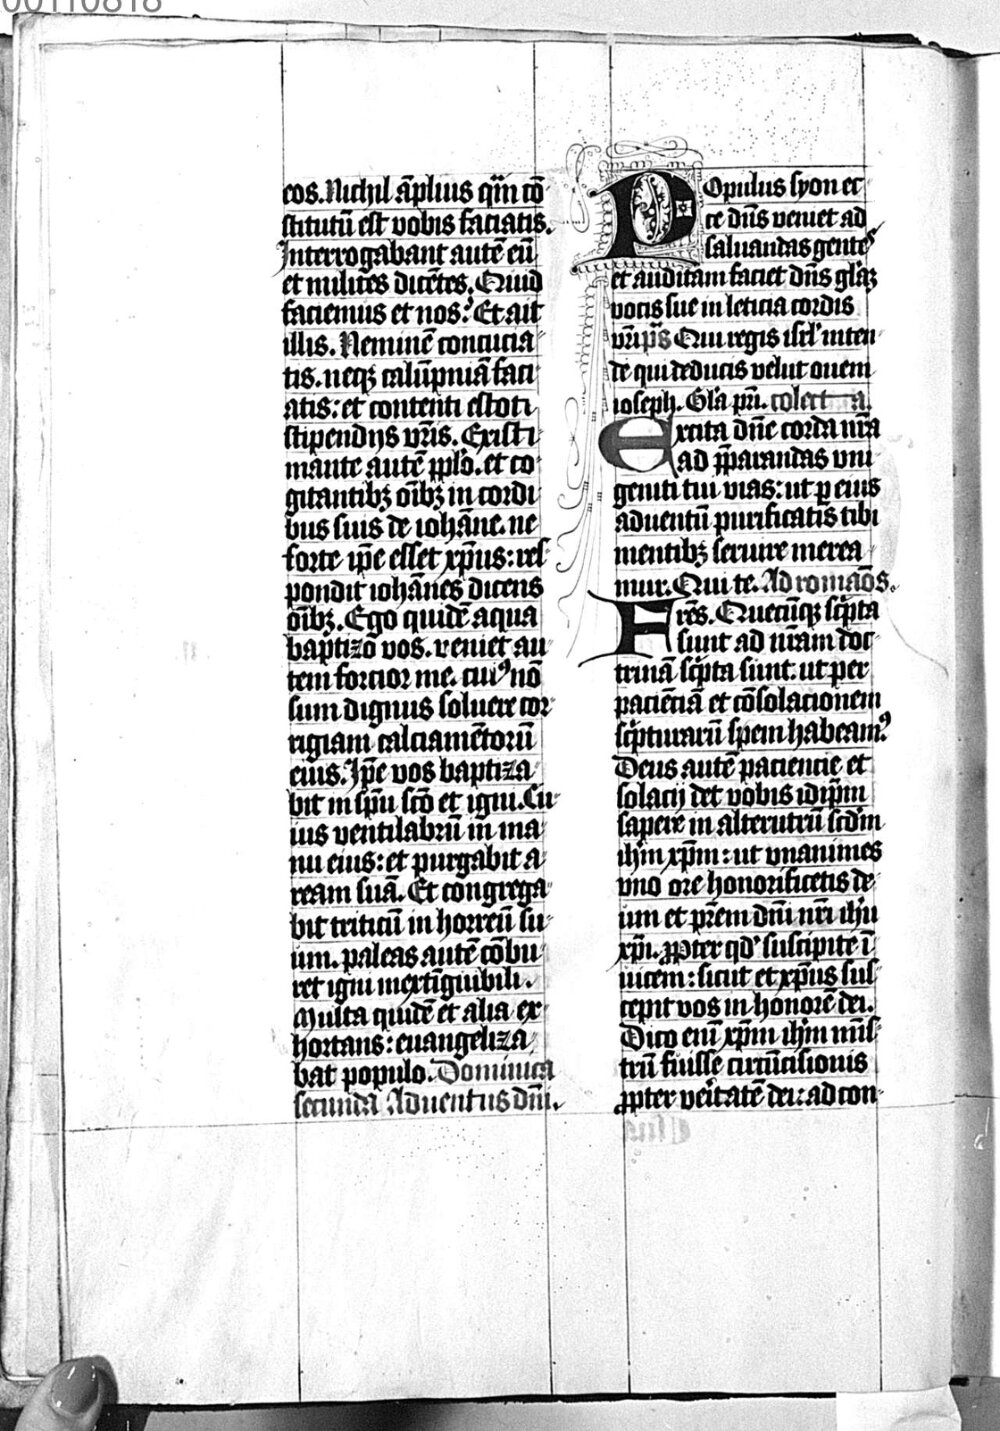 00110818
eos. Nichil ãplius qͣm cõ
stitutũ est vobis faciatis.
Interrogabant autẽ eũ
et milites dicẽtes. Quid
faciemus et nos? Et ait
illis. Neminẽ concucia
tis. neqꝫ calũpniã faci
atis: et contenti estoti
stipendijs vr̃is. Existi
mante autẽ pplo. et co
gitantibꝫ oĩbꝫ in cordi
bus suis de iohãne. ne
forte ip̃e esset xp̃us: res
pondit iohãnes dicens
oĩbꝫ. Ego quidẽ aqua
baptizo vos. veniet au
tem forcior me. cuiꝰ nõ
sum dignus soluere cor
rigiam calciamẽtorũ
eius. Ip̃e vos baptiza
bit in sp̃u sc̃o et igni. Cu
ius ventilabrũ in ma
nu eius: et purgabit a
ream suã. Et congrega
bit triticũ in horreũ su
um. paleas autẽ cõbu
ret igni inextĩguibili.
Multa quidẽ et alia ex
hortans: euangeliza
bat populo. Dominica
secunda Aduentus dñi.
Populus syon ec
ce dñs veniet ad
saluandas gentes
et auditam faciet dñs gl̃aꝫ
vocis sue in leticia cordis
vr̃i p̃s Qui regis isrl̃ inten
de qui deducis velut ouem
ioseph. Gl̃a pr̃i. colecta.
Excita dñe corda nr̃a
ad p̃parandas vni
geniti tui vias: ut ꝑ eius
aduentũ purificatis tibi
mentibꝫ seruire merea
mur. Qui te. Ad romaños.
Fr̃es. Quecũqꝫ scͥpta
sunt ad nr̃am doc
trinã scͥpta sunt. ut per
pacienciã et cõsolacionem
scͥpturarũ spem habeamꝰ
Deus autẽ paciencie et
solacij det vobis idip̃m
sapere in alterutrũ scd̃m
ih̃m xp̃m: ut vnanimes
vno ore honorificetis de
um et pr̃em dñi nr̃i ih̃u
xp̃i. ꝓpter qd̛ suscipite ĩ
uicem: sicut et xp̃us sus
cepit vos in honorẽ dei.
Dico enĩ xp̃m ih̃m minis
trũ fuisse circũcisionis
ꝓpter veritatẽ dei: ad con